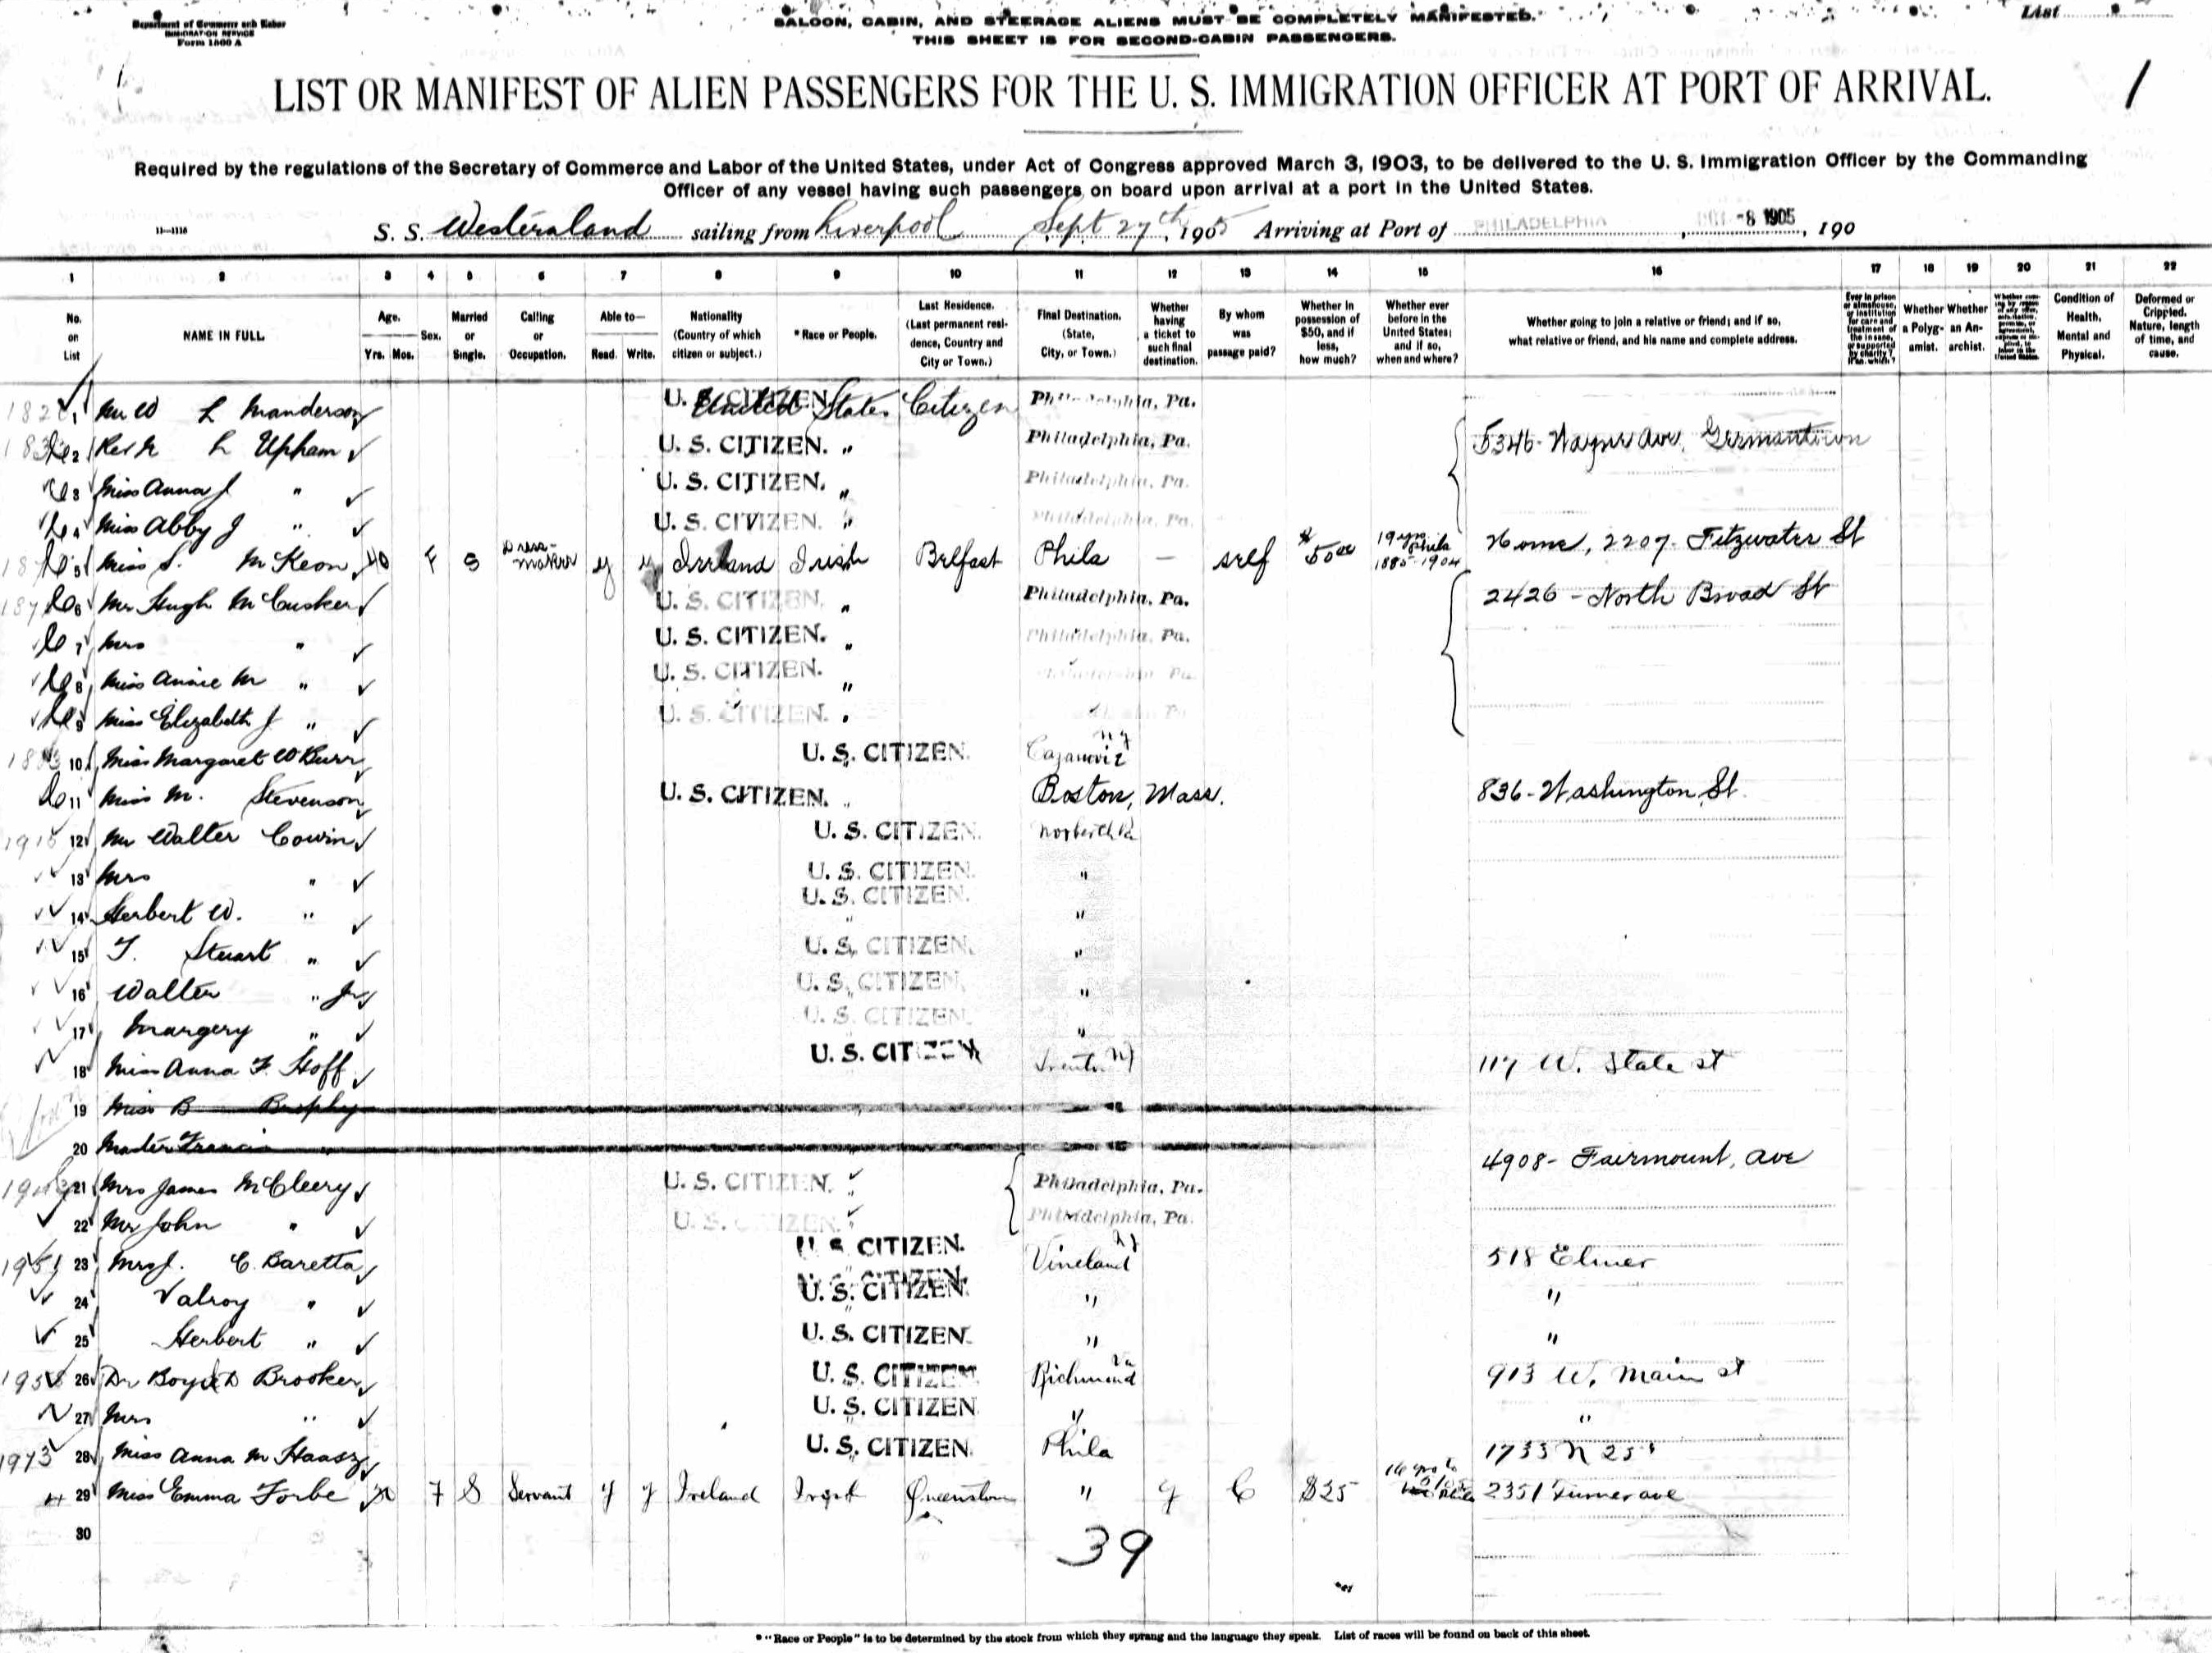 Department of Commerce and Labor
IMMIGRATION SERVICE
Form 1500 A
SALOON, CABIN, AND STEERAGE ALIENS MUST BE COMPLETELY MANIFESTED.
THIS SHEET IS FOR SECOND-CABIN PASSENGERS.
List
LIST OR MANIFEST OF ALIEN PASSENGERS FOR THE U. S. IMMIGRATION OFFICER AT PORT OF ARRIVAL.
1
Required by the regulations of the Secretary of Commerce and Labor of the United States, under Act of Congress approved March 3, 1903, to be delivered to the U. S. Immigration Officer by the Commanding
Officer of any vessel having such passengers on board upon arrival at a port in the United States.
11—1116 S. S. Westernland sailing from Liverpool Sept 27th, 1905 Arriving at Port of PHILADELPHIA, -8 1905, 190
1 2 3 4 5 6 7 8 9 10 11 12 13 14 15 16 17 18 19 20 21 22
No. on List
NAME IN FULL
Age. Yrs. Mos.
Sex.
Married or Single.
Calling or Occupation.
Able to— Read. Write.
Nationality (Country of which citizen or subject.)
*Race or People.
Last Residence. (Last permanent residence, Country and City or Town.)
Final Destination. (State, City, or Town.)
Whether having a ticket to such final destination.
By whom was passage paid?
Whether in possession of $50, and if less, how much?
Whether ever before in the United States; and if so, when and where?
Whether going to join a relative or friend; and if so, what relative or friend, and his name and complete address.
Ever in prison or almshouse, or institution for care and treatment of the insane, or supported by charity? If so, which?
Whether a Polygamist.
Whether an Anarchist.
Condition of Health, Mental and Physical.
Deformed or Crippled. Nature, length of time, and cause.
1 Mr W L Manderson U. S. CITIZEN United States Citizen Philadelphia, Pa.
2 L Upham U. S. CITIZEN. " Philadelphia, Pa. 5346- Wayne Ave, Germantown
3 Miss Anna J " U. S. CITIZEN. " Philadelphia, Pa.
4 Miss Abby J " U. S. CITIZEN. " Philadelphia, Pa.
5 Miss S. McKeon 40 F S Dress-maker y y Ireland Irish Belfast Phila — self $50 00 19 yrs Phila 1885-1904 Home, 2207- Fitzwater St
6 Mr Hugh McCusker U. S. CITIZEN. " Philadelphia, Pa. 2426 - North Broad St
7 Mrs " U. S. CITIZEN. " Philadelphia, Pa.
8 Miss Annie M " U. S. CITIZEN. " Philadelphia Pa.
9 Miss Elizabeth J " U. S. CITIZEN. "
10 Miss Margaret W Burr U. S. CITIZEN. NY
11 Miss M. Stevenson U. S. CITIZEN. " Boston, Mass. 836- Washington St.
12 Mr Walter Cowin U. S. CITIZEN.
13 Mrs " U. S. CITIZEN. "
14 Herbert W. " U. S. CITIZEN. "
15 T. Stuart " U. S. CITIZEN. "
16 Walter " Jr U. S. CITIZEN. "
17 Margery " U. S. CITIZEN. "
18 Miss Anna F. Hoff U. S. CITIZEN Trenton NJ 117 W. State st
19 Miss B
20 Master Francis
21 Mrs James McCleery U. S. CITIZEN. Philadelphia, Pa. 4908- Fairmount, ave
22 Mr John " U. S. CITIZEN. Philadelphia, Pa.
23 Mrs J. C. Baretta U. S. CITIZEN. Vineland NJ 518 Elmer
24 Valroy " U. S. CITIZEN. " "
25 Herbert " U. S. CITIZEN. " "
26 Dr Boyd D Brooker U. S. CITIZEN Richmond Va 913 W. Main st
27 Mrs " U. S. CITIZEN " "
28 Miss Anna M Haasz U. S. CITIZEN. Phila 1733 N 25
29 Miss Emma Forbe F S Servant y y Ireland Irish Queenstown " y $25 2351 Turner ave
30
39
* "Race or People" is to be determined by the stock from which they sprang and the language they speak. List of races will be found on back of this sheet.